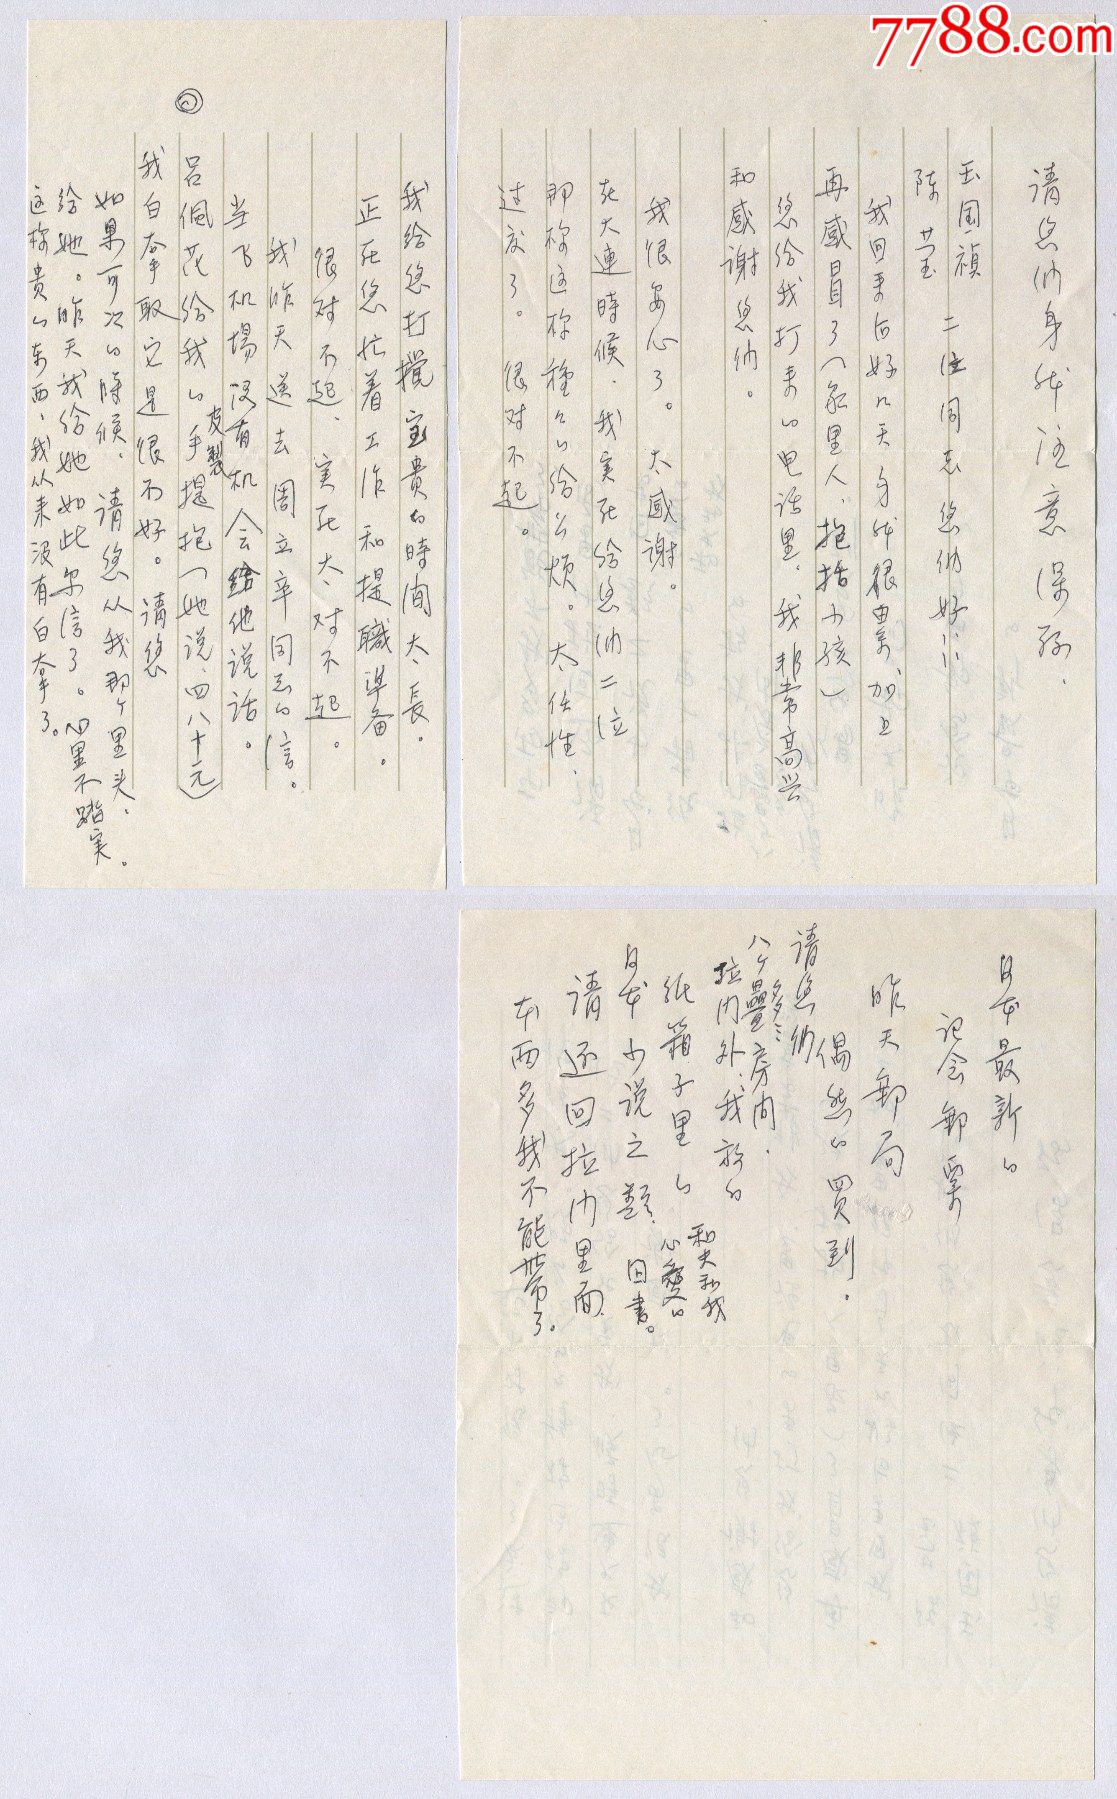 7788.com
请您们身体注意保珍.
王国禎
陈莹
二位同志您们好!!
我回来后好几天身体很累、加上
再感冒了(家里人、抱括小孩)
您给我打来的电话里.我非常高兴
和感谢您们。
我很安心了。太感谢。
在大連時候.我实在给您们二位
那称这称種々的给公烦。太任性.
过度了。很对不起。
我给您打擾宝贵的時间太々長。
正在您忙着工作和提職準备。
很对不起、实在太々对不起。
我昨天送去周立辛同志的信。
当飞机場没有机会给他说话。
吕佩花给我的皮製手提抱(她说、四八十元)
我白拿取它是很不好。请您
如果可次的時候、请您从我那个里头.
给她。昨天我给她如此尔信了。心里不踏实。
这称贵的东西、我从来没有白拿了。
日本最新的
记会邮票
昨天邮局
偶然的買到.
请您们
八个疊多多ミ房间.
拉门外、我放的
纸箱子里的
和夫和我
心愛的
日本小说之類.回書。
请还回拉门里面
东西多我不能带了。